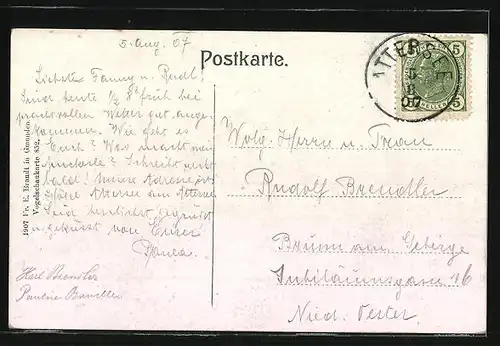 5. Aug. 07
Postkarte.
Liebste Fanny u. Rudl!
Sind heute 1/2 8h früh bei
prachtvollem Wetter gut ange-
kommen. Wie geht es
Euch? Was macht mei
Schreibt recht
bald! Meine Adresse ist
Attersee am Attersee
Seid herzlichst gegrüßt
u. geküsst von Eurer
Paula
Pauline
1907 Fr. E. Brandt in Gmunden.
Vogelschaukarte 832.
ATTERSEE
5
8
07
5 5
HELLER
Wolg. Herrn u. Frau
Rudolf Brendler
Brunn am Gebirge
Jubiläumsgasse 16
Nied. Oester.